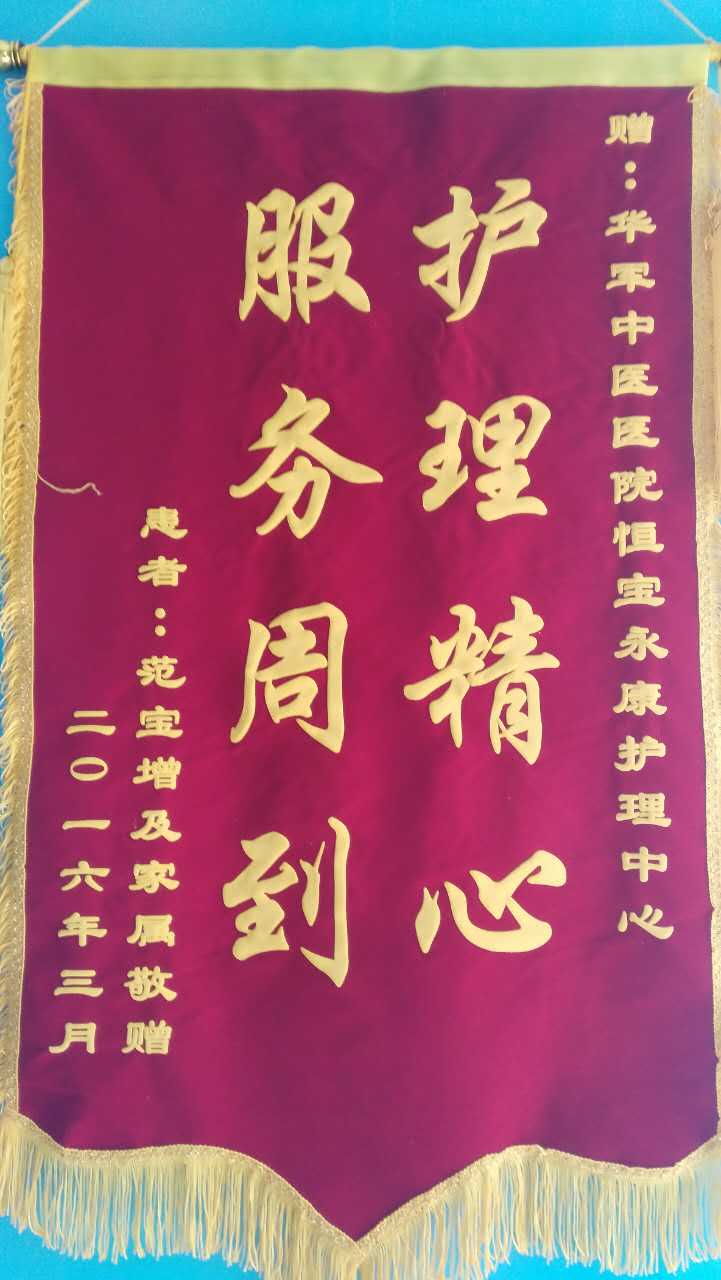 赠：华军中医医院恒宝永康护理中心
护理精心
服务周到
患者：范宝增及家属敬赠
二〇一六年三月